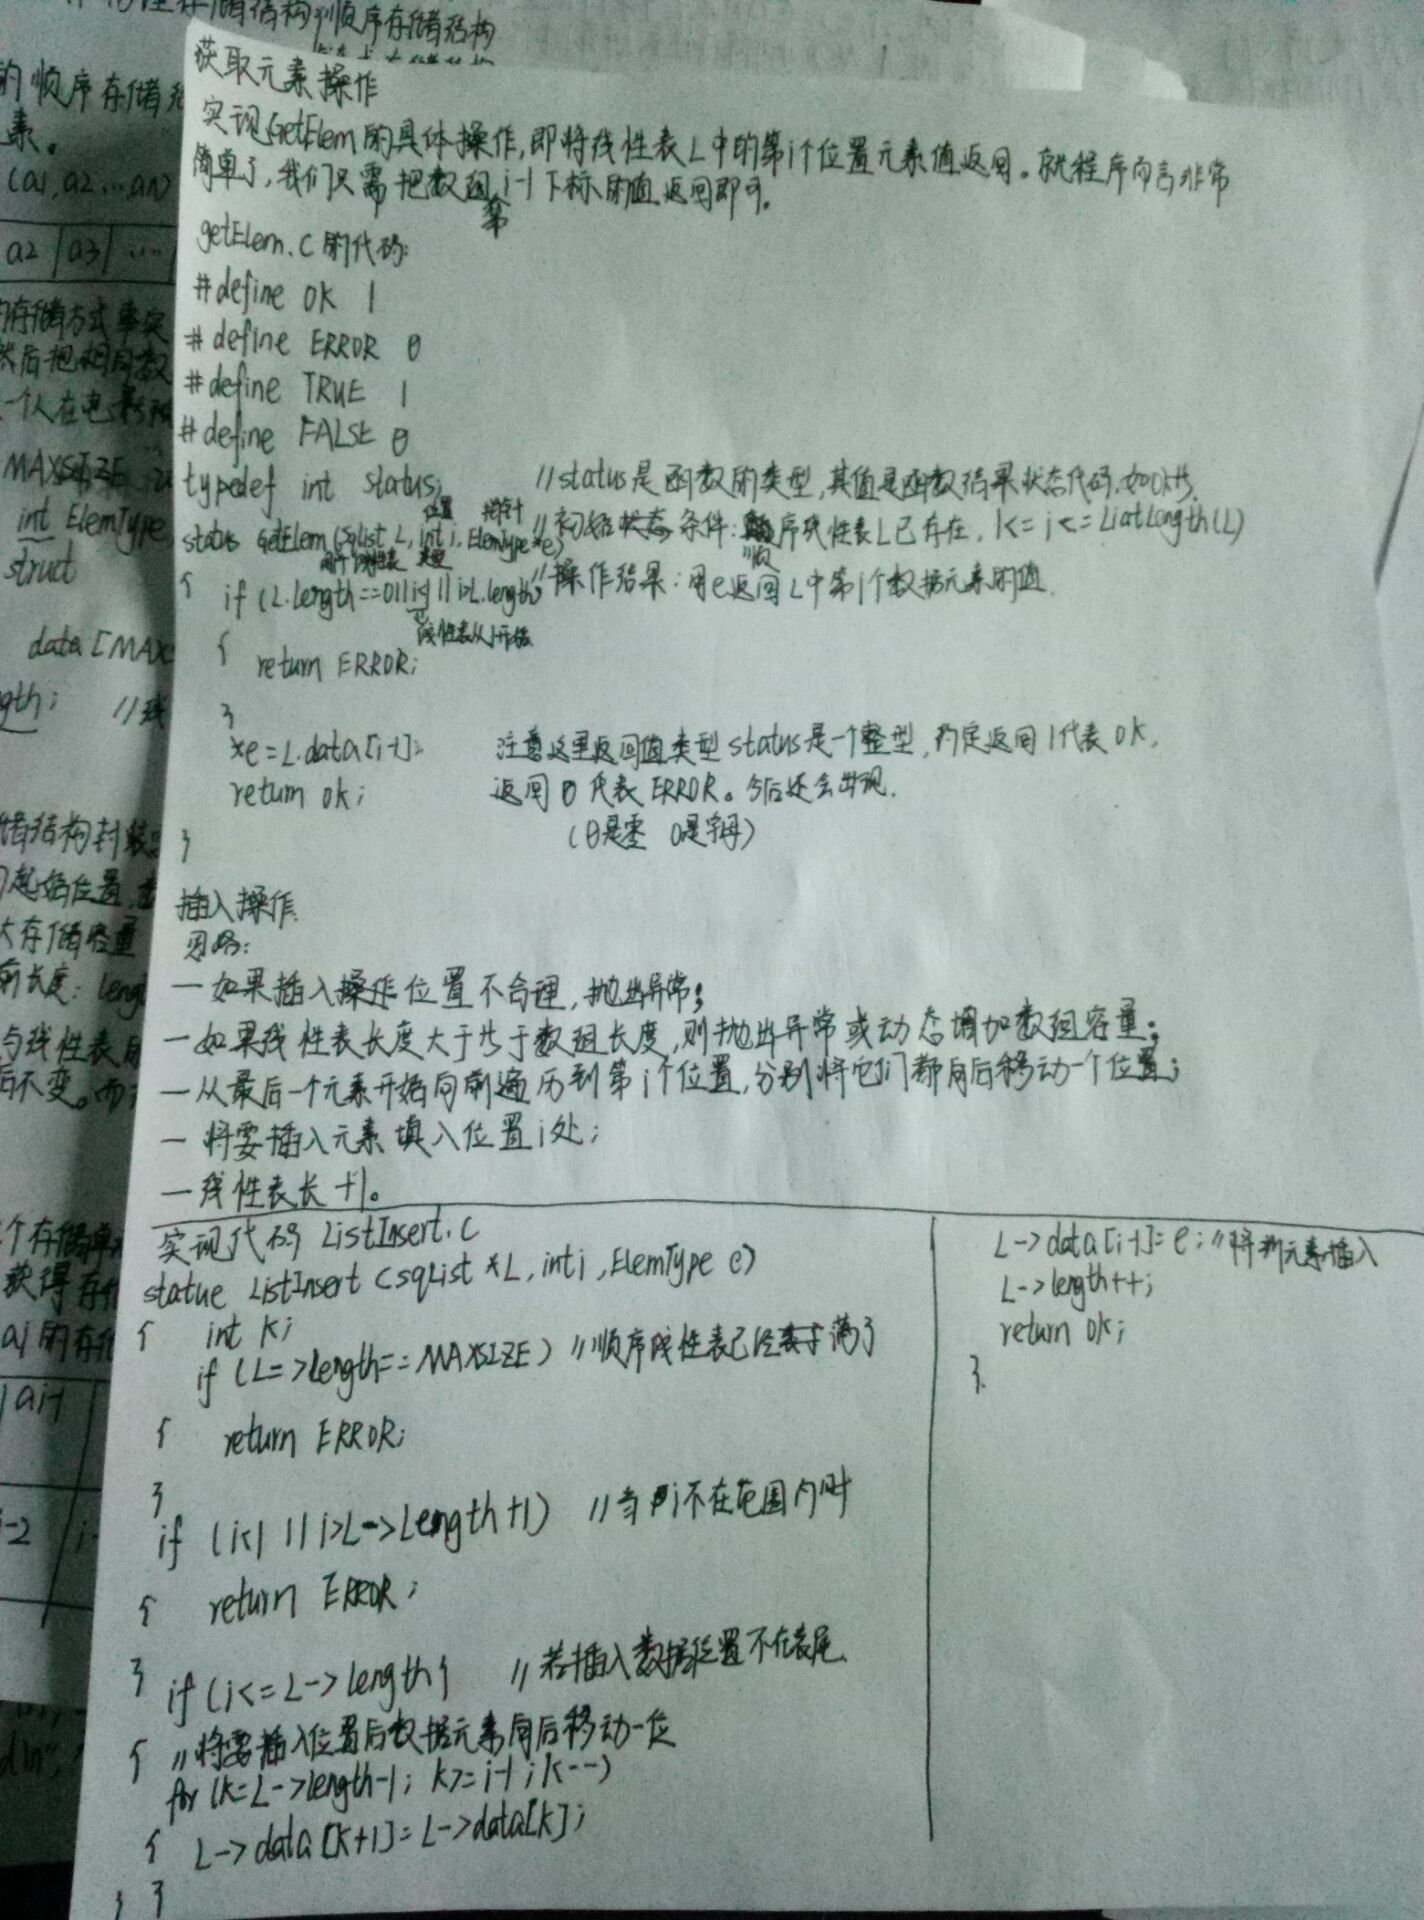 获取元素操作
实现GetElem的具体操作,即将线性表L中的第i个位置元素值返回。就程序而言非常
简单了,我们只需把数组第i-1下标的值返回即可。
getElem.c的代码:
#define OK 1
#define ERROR 0
#define TRUE 1
#define FALSE 0
typedef int status; //status是函数的类型,其值是函数结果状态代码,如OK等.
位置 指针
status GetElem(sqlist L, int i, ElemType *e) //初始状态条件:顺序线性表L已存在, 1<=i<=LiatLength(L)
类型
{ if (L.length==0||i<1||i>L.length) //操作结果:用e返回L中第i个数据元素的值.
线性表从1开始
{ return ERROR;
}
*e=L.data[i-1]; 注意这里返回值类型status是一个整型,约定返回1代表OK,
return ok; 返回0代表ERROR。今后还会出现.
(0是零 O是字母)
}
插入操作.
思路:
一如果插入操作位置不合理,抛出异常;
一如果线性表长度大于等于数组长度,则抛出异常或动态增加数组容量;
一从最后一个元素开始向前遍历到第i个位置,分别将它们都向后移动一个位置;
一将要插入元素填入位置i处;
一线性表长+1。
实现代码 ListInsert.c
statue ListInsert (sqList *L, int i, ElemType e)
{ int k;
if (L=>length==MAXSIZE) //顺序线性表已经满了
{ return ERROR;
}
if (i<1 || i>L->Length+1) //当i不在范围内时
{ return ERROR;
} if (i<=L->length) //若插入数据位置不在表尾.
{ //将要插入位置后数据元素向后移动一位
for (k=L->length-1; k>=i-1; k--)
{ L->data[k+1]=L->data[k];
} }
L->data[i-1]=e; //将新元素插入
L->length++;
return ok;
}.
的顺序存储结
素。
(a1,a2...an)
a2 a3 ....
MAXSIZE
int ElemType
struct
data[MAX
gth; //线
储结构封装
起始位置
大存储容量
前长度: leng
与线性表
后不变。而
个存储单
获得存
ai的存
ai-1
i-2 i-